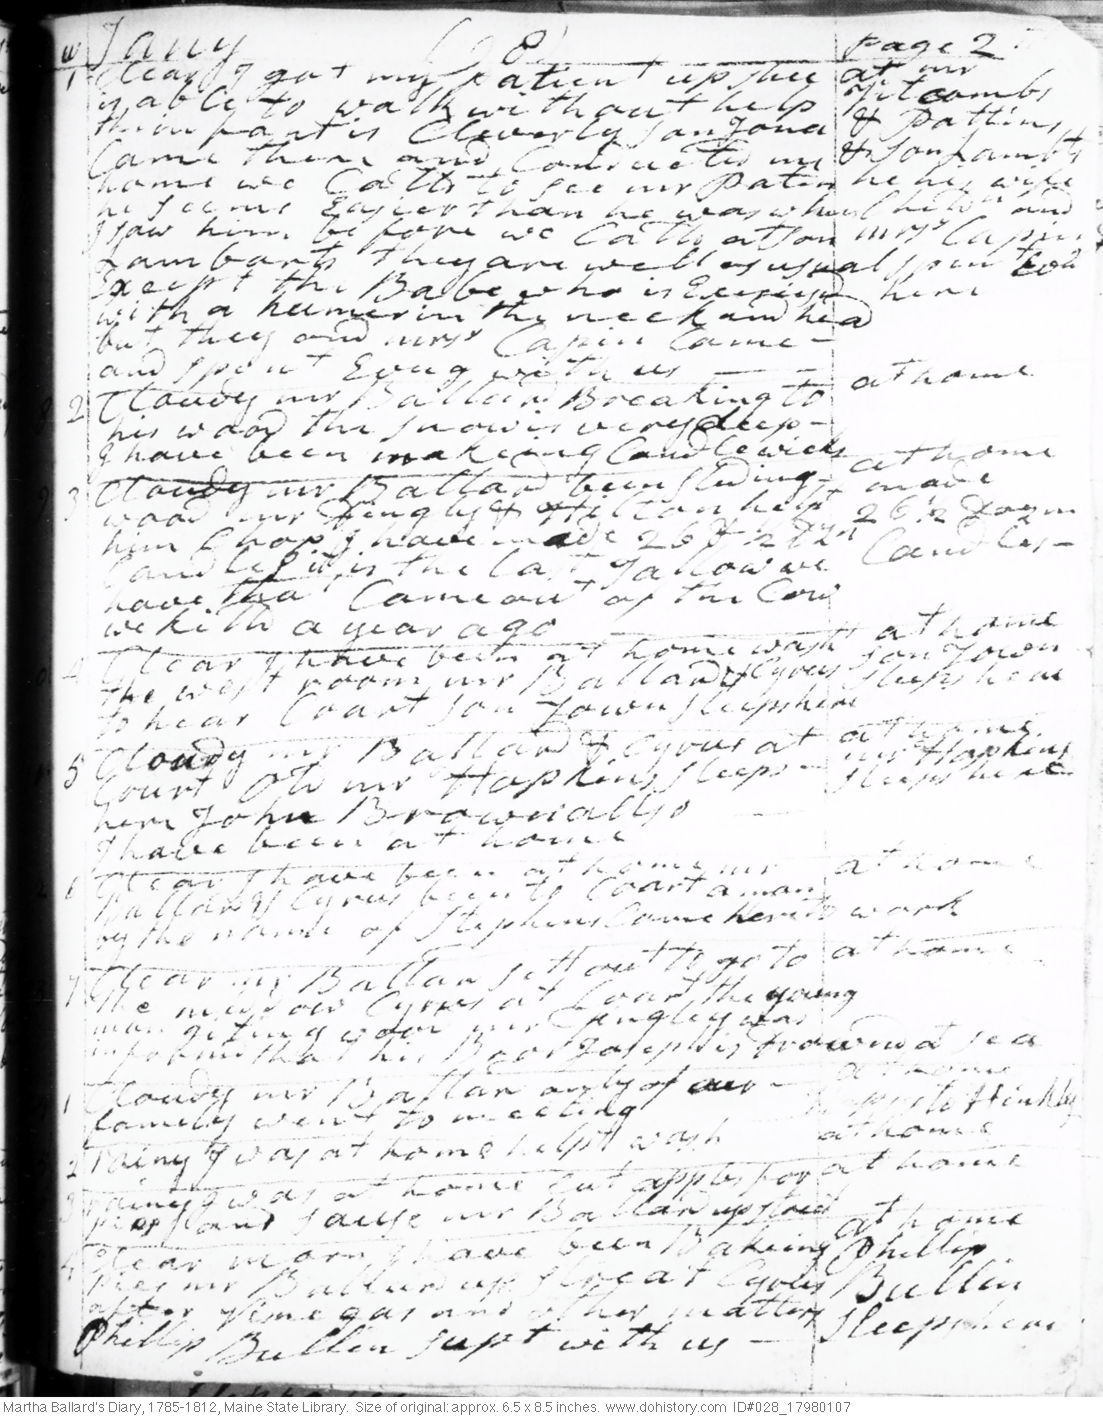 w Jany (98) page 2
1 Clear I gat my patient up, shee at mr
is able to walk without help Titcombs
thin fant is Cleverly son Jona & Pattins
Came there and Conducted me & son Lambts
home we Calld to see mr Paten he his wife
he seems Easier than he was when child and
I saw him before we Calld at son mrs Capin
Lambards they are well as usual spent Eve
Except the Babe who is Exersisd here
with a humer in the neck and head
but they and mrs Capin Came -
and spent Evng with us
8 2 Cloudy mr Ballard Breaking to at home
his wood the snow is very deep -
I have been making Candlewicks
9 3 Cloudy mr Ballard been sleding at home
wood mr Pingley & Hilton helpt made
him Chop I have made 26 & ½ dzn 26½ dozn
Candles it is the last Tallow we Candles -
have tha Came out of the Cow
we kild a year ago
4 Clear I have been at home washt at home
the west room mr Ballard & Cyrus son Town
to hear Coart son Town sleeps here sleeps here
5 Cloudy mr Ballard & Cyrus at at home
Court Old mr Hopkins sleeps - mr Hopkins
here John Brown allso sleeps here
I have been at home
6 Clear I have been at home mr at home
Ballard & Cyrus been to Coart a man
by the name of Stephens Came here to work
7 Clear mr Ballard sett out to go to at home
the meddow Cyrus at Coart, the young
man giting wood mr Pingley was
informd that his Bror Joseph is Drownd at sea
1 Cloudy mr Ballard only of our - at home
family went to meeting Hinkly
2 rainy I was at home helpt wash at home
3 rainy I was at home Cut apples for at home
pies and sause mr Ballard up street
4 Clear morn I have been Bakeing at home
pies mr Ballard up street Cyrus Phillip
after Vinegar and other matters Bullin
Phillip Bullin supt with us - sleeps here
Martha Ballard's Diary, 1785-1812, Maine State Library. Size of original: approx. 6.5 x 8.5 inches. www.dohistory.com ID#028_17980107